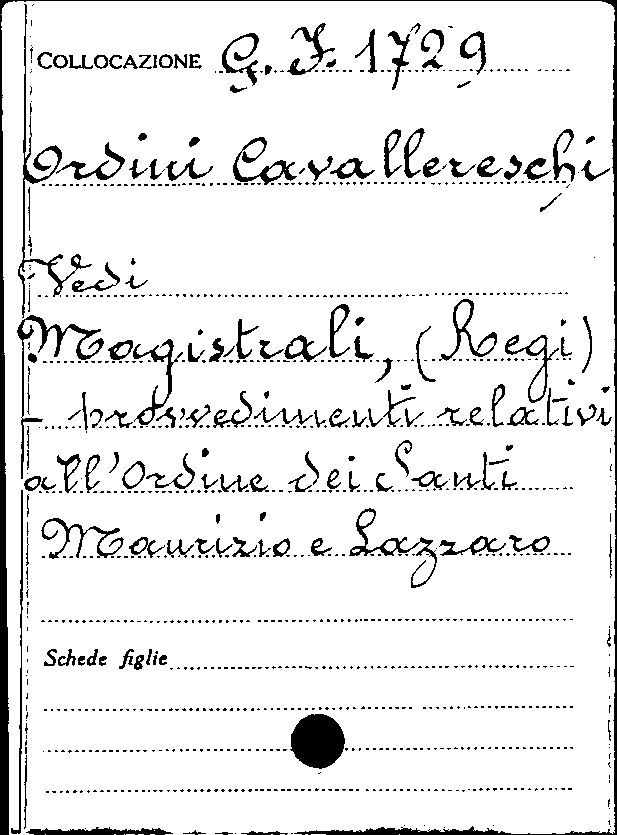 COLLOCAZIONE G. I. 1729
Ordini Cavallereschi
Vedi
Magistrali, (Regi)
- provvedimenti relativi
all'Ordine dei Santi
Maurizio e Lazzaro
Schede figlie